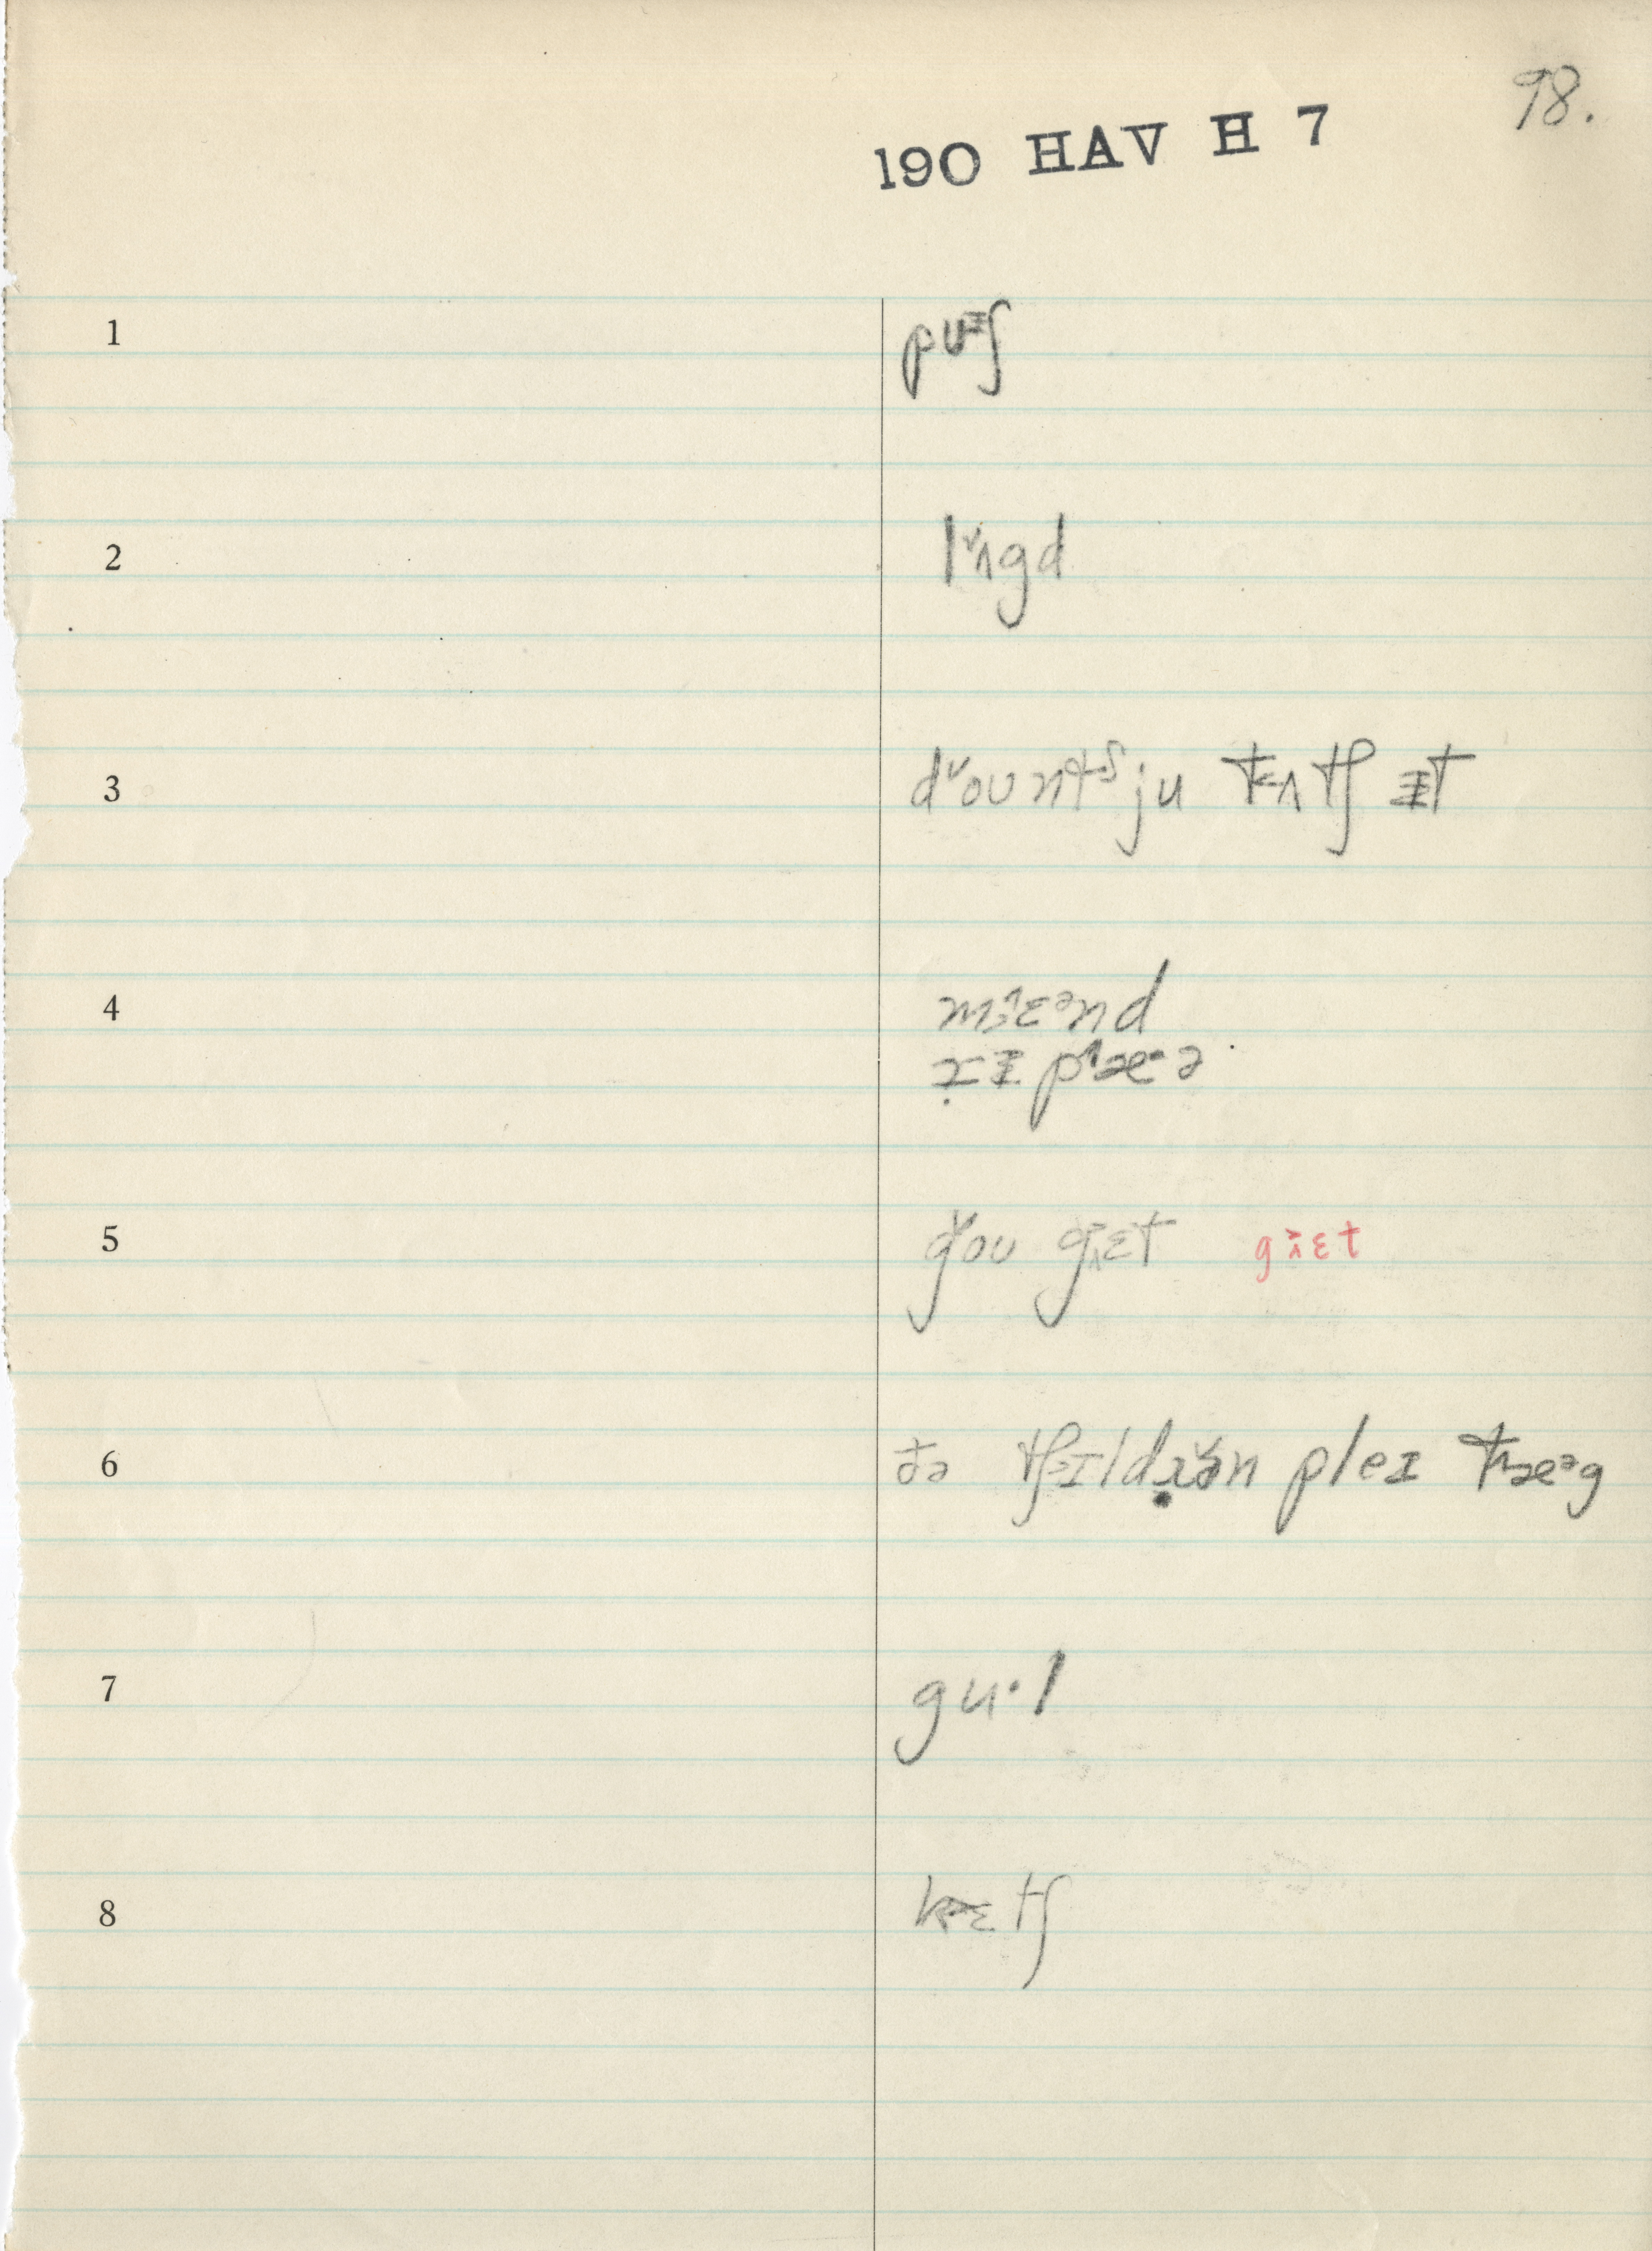 98.
190 HAV H 7
1 pʊᵻʃ
2 lʌ̌gd
3 dˇoʊntˢju tʌtʃ ᵻt
4 mɛᵊnd
rɪ pæə
5 goʊ gɛt gɛt
6 ðə tʃɪldrən pleɪ tæᵊg
7 gu·l
8 kɛtʃ